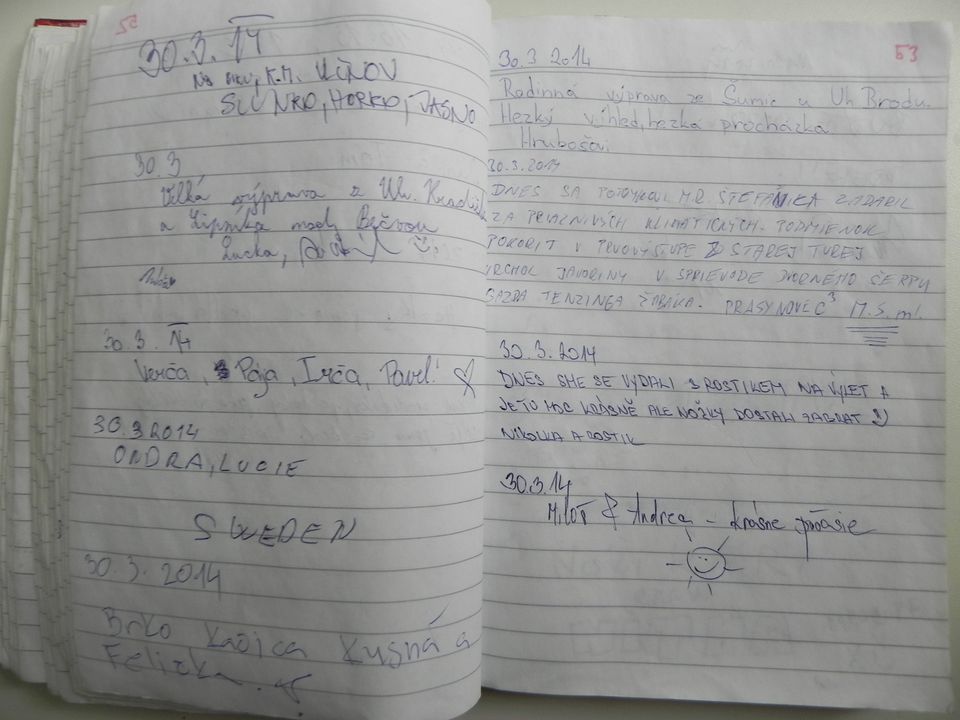 52
30.3.14
K.M. VLČNOV
SLUNKO, HORKO, JASNO
30.3
Velká výprava z Uh. Hradiště
a Lipníka nad Bečvou
Lucka,
30.3.14
Verča, Pája, Irča, Pavel!
30.3 2014
ONDRA, LUCIE
SWEDEN
30.3.2014
Brko Kačica Kusná a
Felicka.
53
30.3 2014
Rodinná výprava ze Šumic u Uh. Brodu.
Hezký výhled, hezká procházka
Hrubošovi
30.3.2014
DNES SA POTOMKOVI M.R. ŠTEFÁNIKA ZADARIL
ZA PRIAZNIVÝCH KLIMATICKÝCH PODMIENOK
POKORIT V PRVOVÝSTUPE Z STAREJ TUREJ
VRCHOL JAVORINY V SPRIEVODE DVORNÉHO ŠERPU
GAZDA TENZINGA ŽABÁKA. PRASYNOVEC³ M.S. ml.
30.3.2014
DNES SME SE VYDALI S ROSTIKEM NA VÝLET A
JE TO MOC KRÁSNĚ ALE NOŽKY DOSTALI ZABRAT :)
NIKOLKA A ROSTIK
30.3.14
MILOŠ & Andrea - krásne počasie